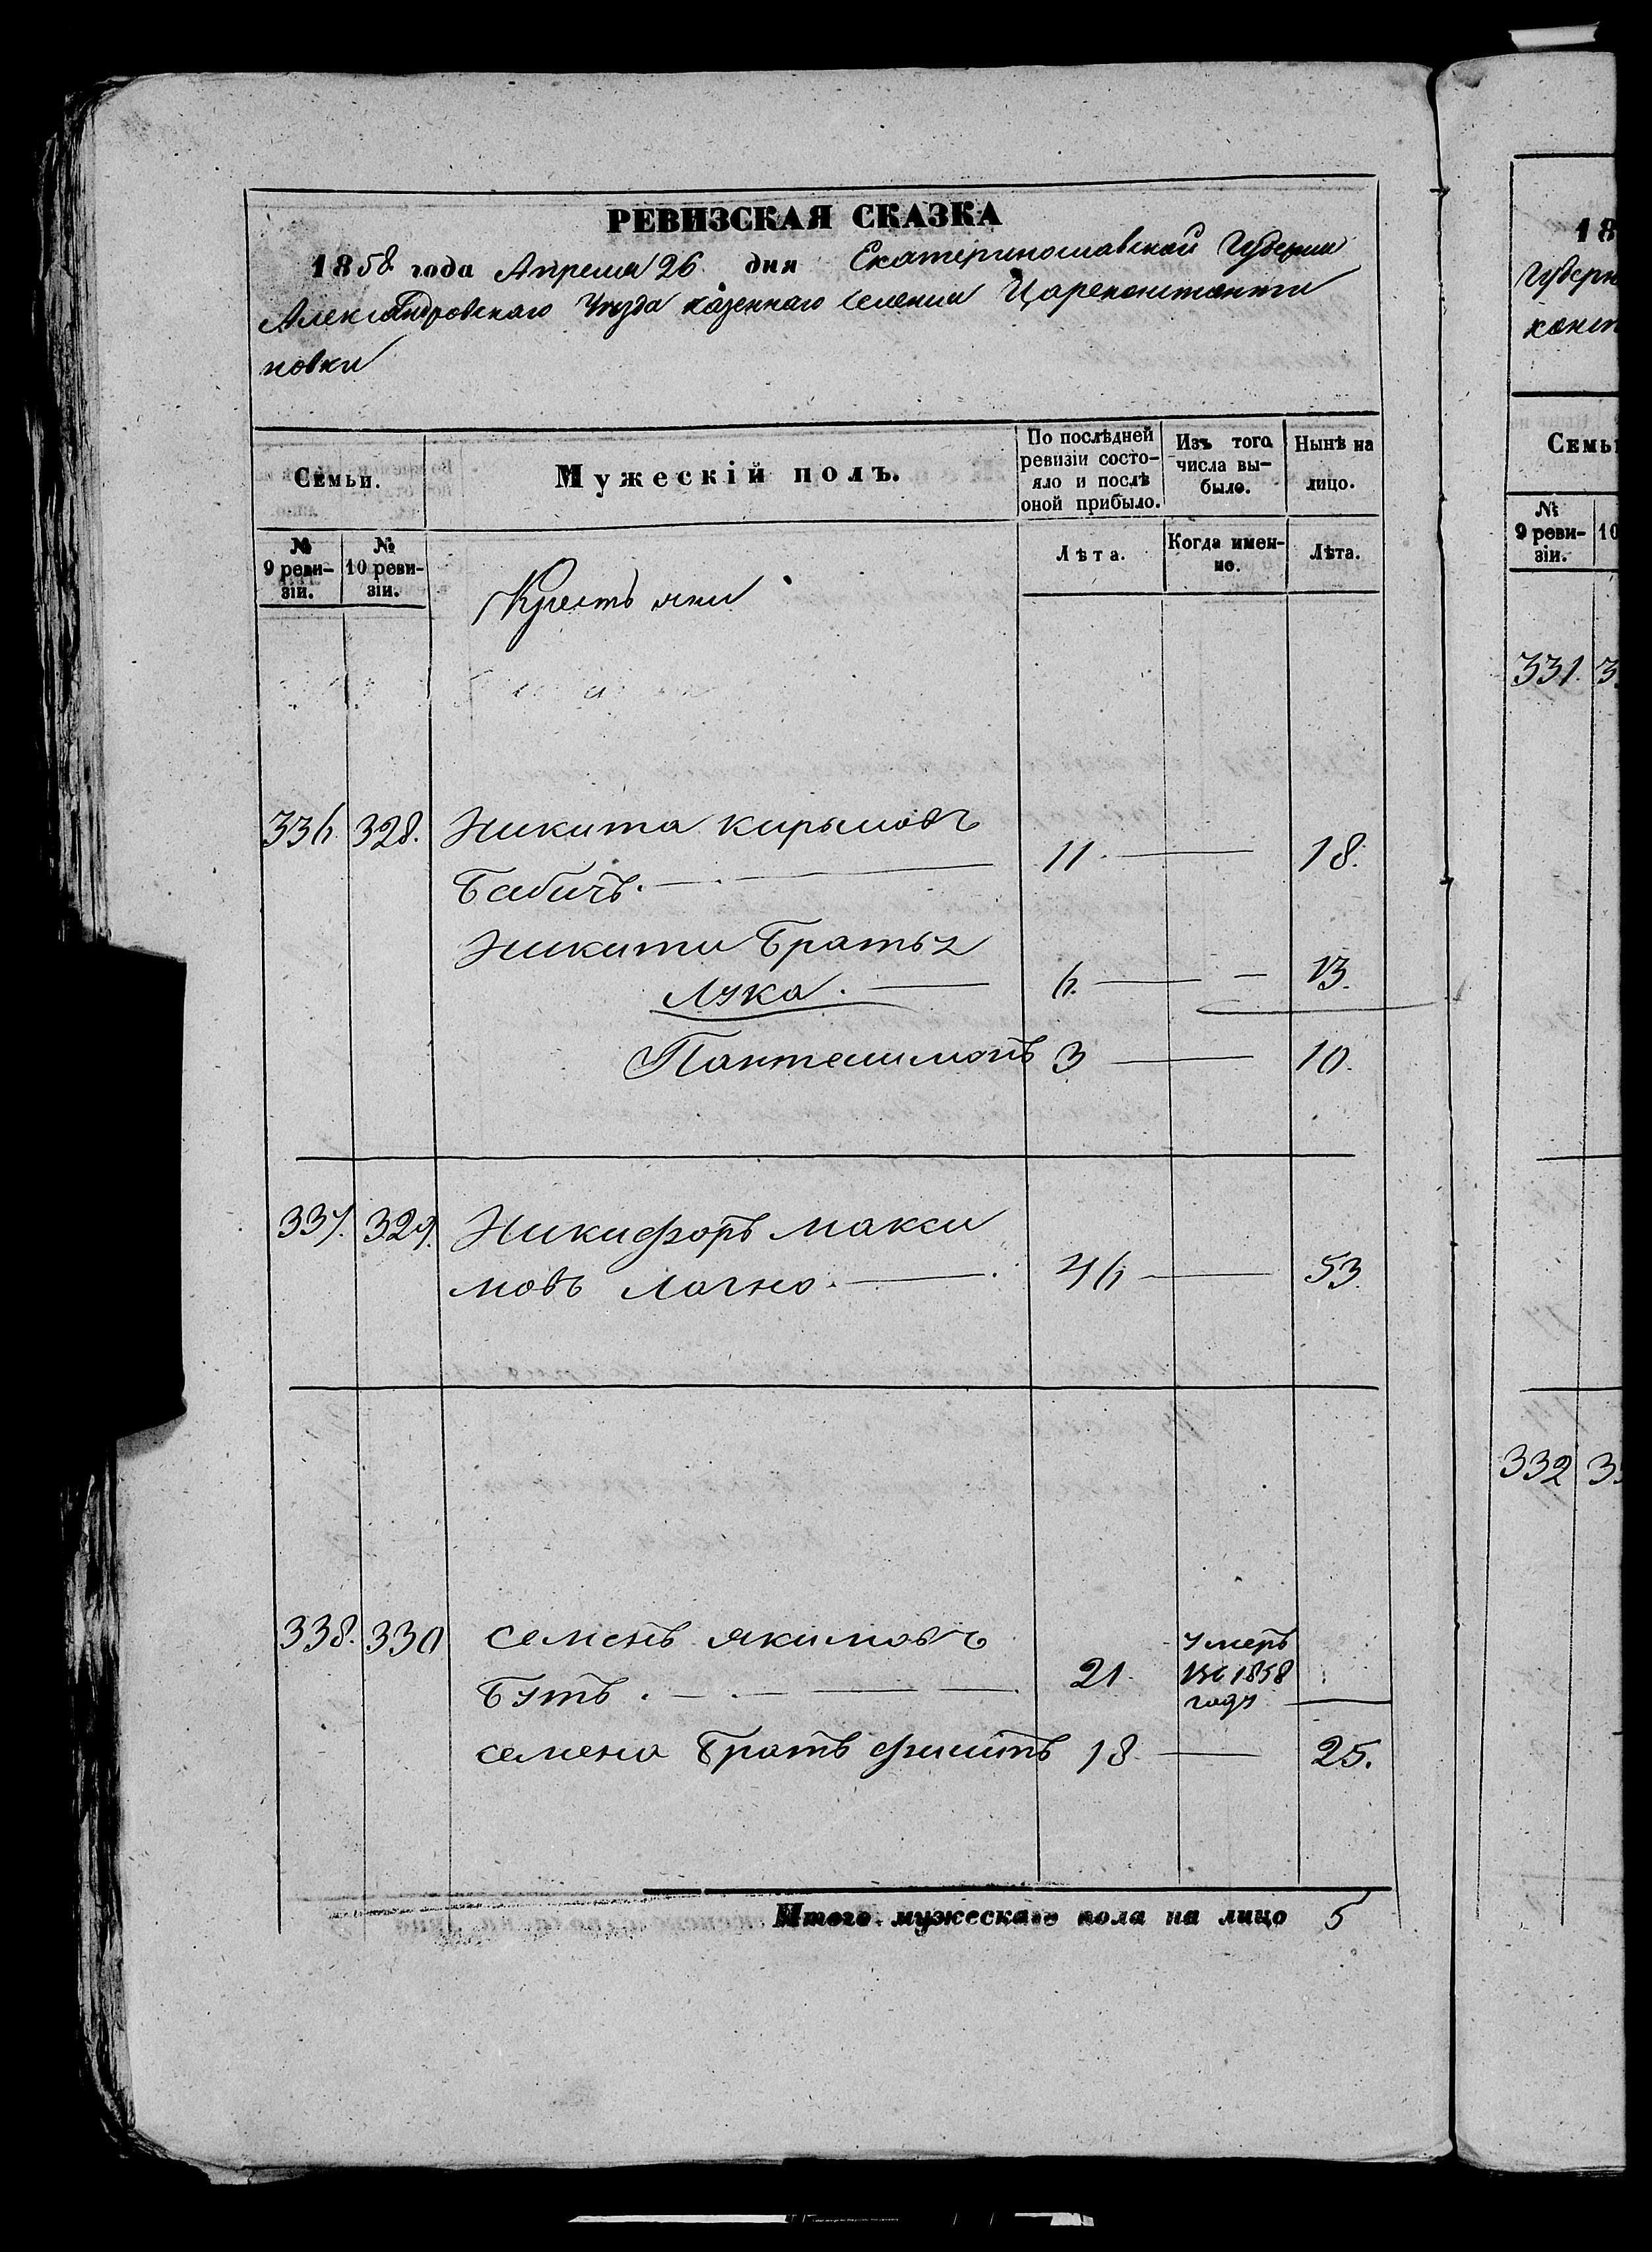 РЕВИЗСКАЯ СКАЗКА
1858 года Апреля 26 дня Екатеринославской Губернии
Александровскаго Уезда казеннаго селения Цареконстанти
новки
Семьи.
Мужескій полъ.
По послѣдней ревизіи состо-
яло и послѣ
оной прибыло.
Изъ того
числа вы-
было.
Нынѣ на
лицо.
№
9 реви-
зіи.
№
10 реви-
зіи.
Лѣта.
Когда имен-
но.
Лѣта.
Крестьяни
336. 328. Никита кирыловъ
Бабичъ. 11. 18.
Никити Братья
Лука. 6. 13.
Пантелимонъ 3 10.
337. 329. Никифоръ макси
мовъ Лагно. 46 53.
338. 330 семенъ якимовъ
Бутъ. 21. умеръ
въ 1858
году
семена Братъ филипъ 18 25.
Итого мужескаго пола на лицо 5
18
Губерн
конст
Семьи
№
9 реви-
зіи.
10
331. 3
332 33